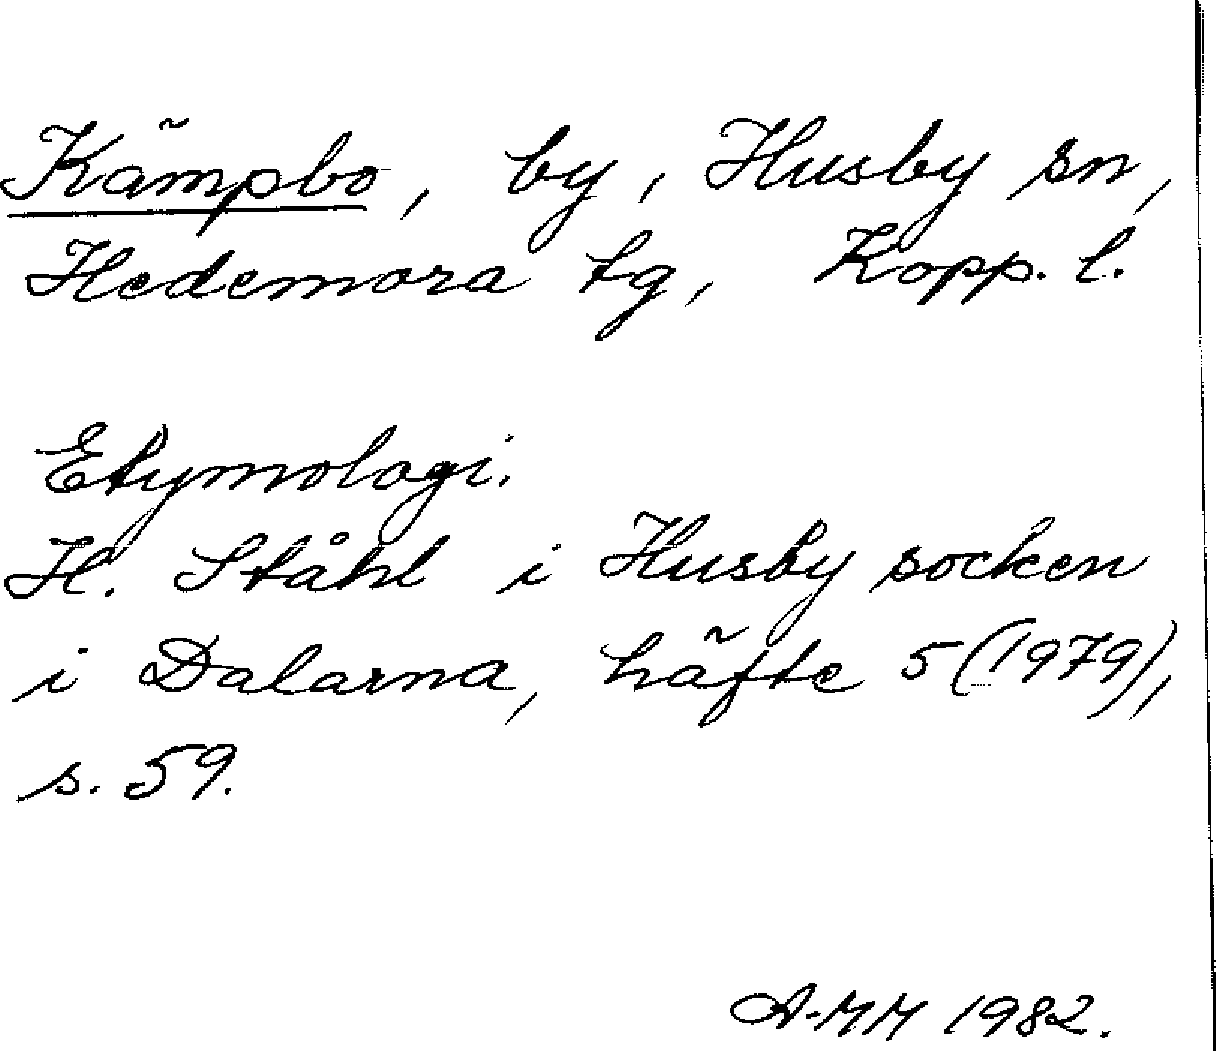 Kämpbo, by, Husby sn,
Hedemora tg, Kopp. l.
Etymologi.
H. Ståhl i Husby socken
i Dalarna, häfte 5 (1979),
s. 59.
A-MM 1982.